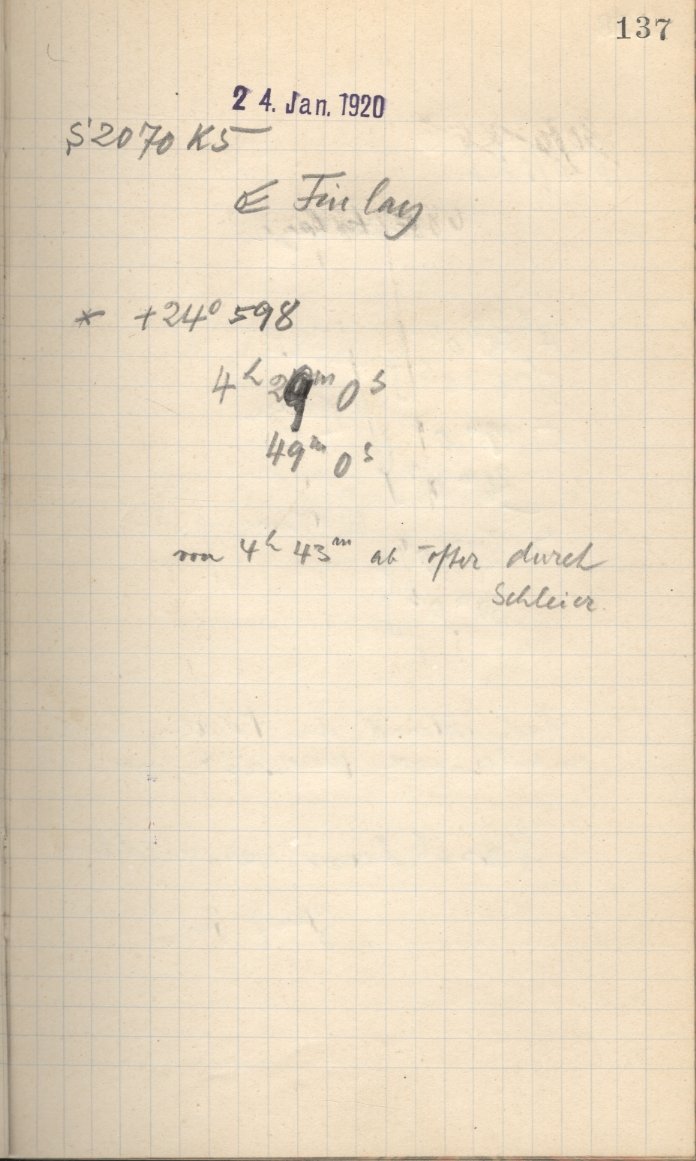 137
24. Jan. 1920
S2070 K5
Finlay
* +24° 598
4h 29m 0s
49m 0s
von 4h 43m ab öfter durch
Schleier.